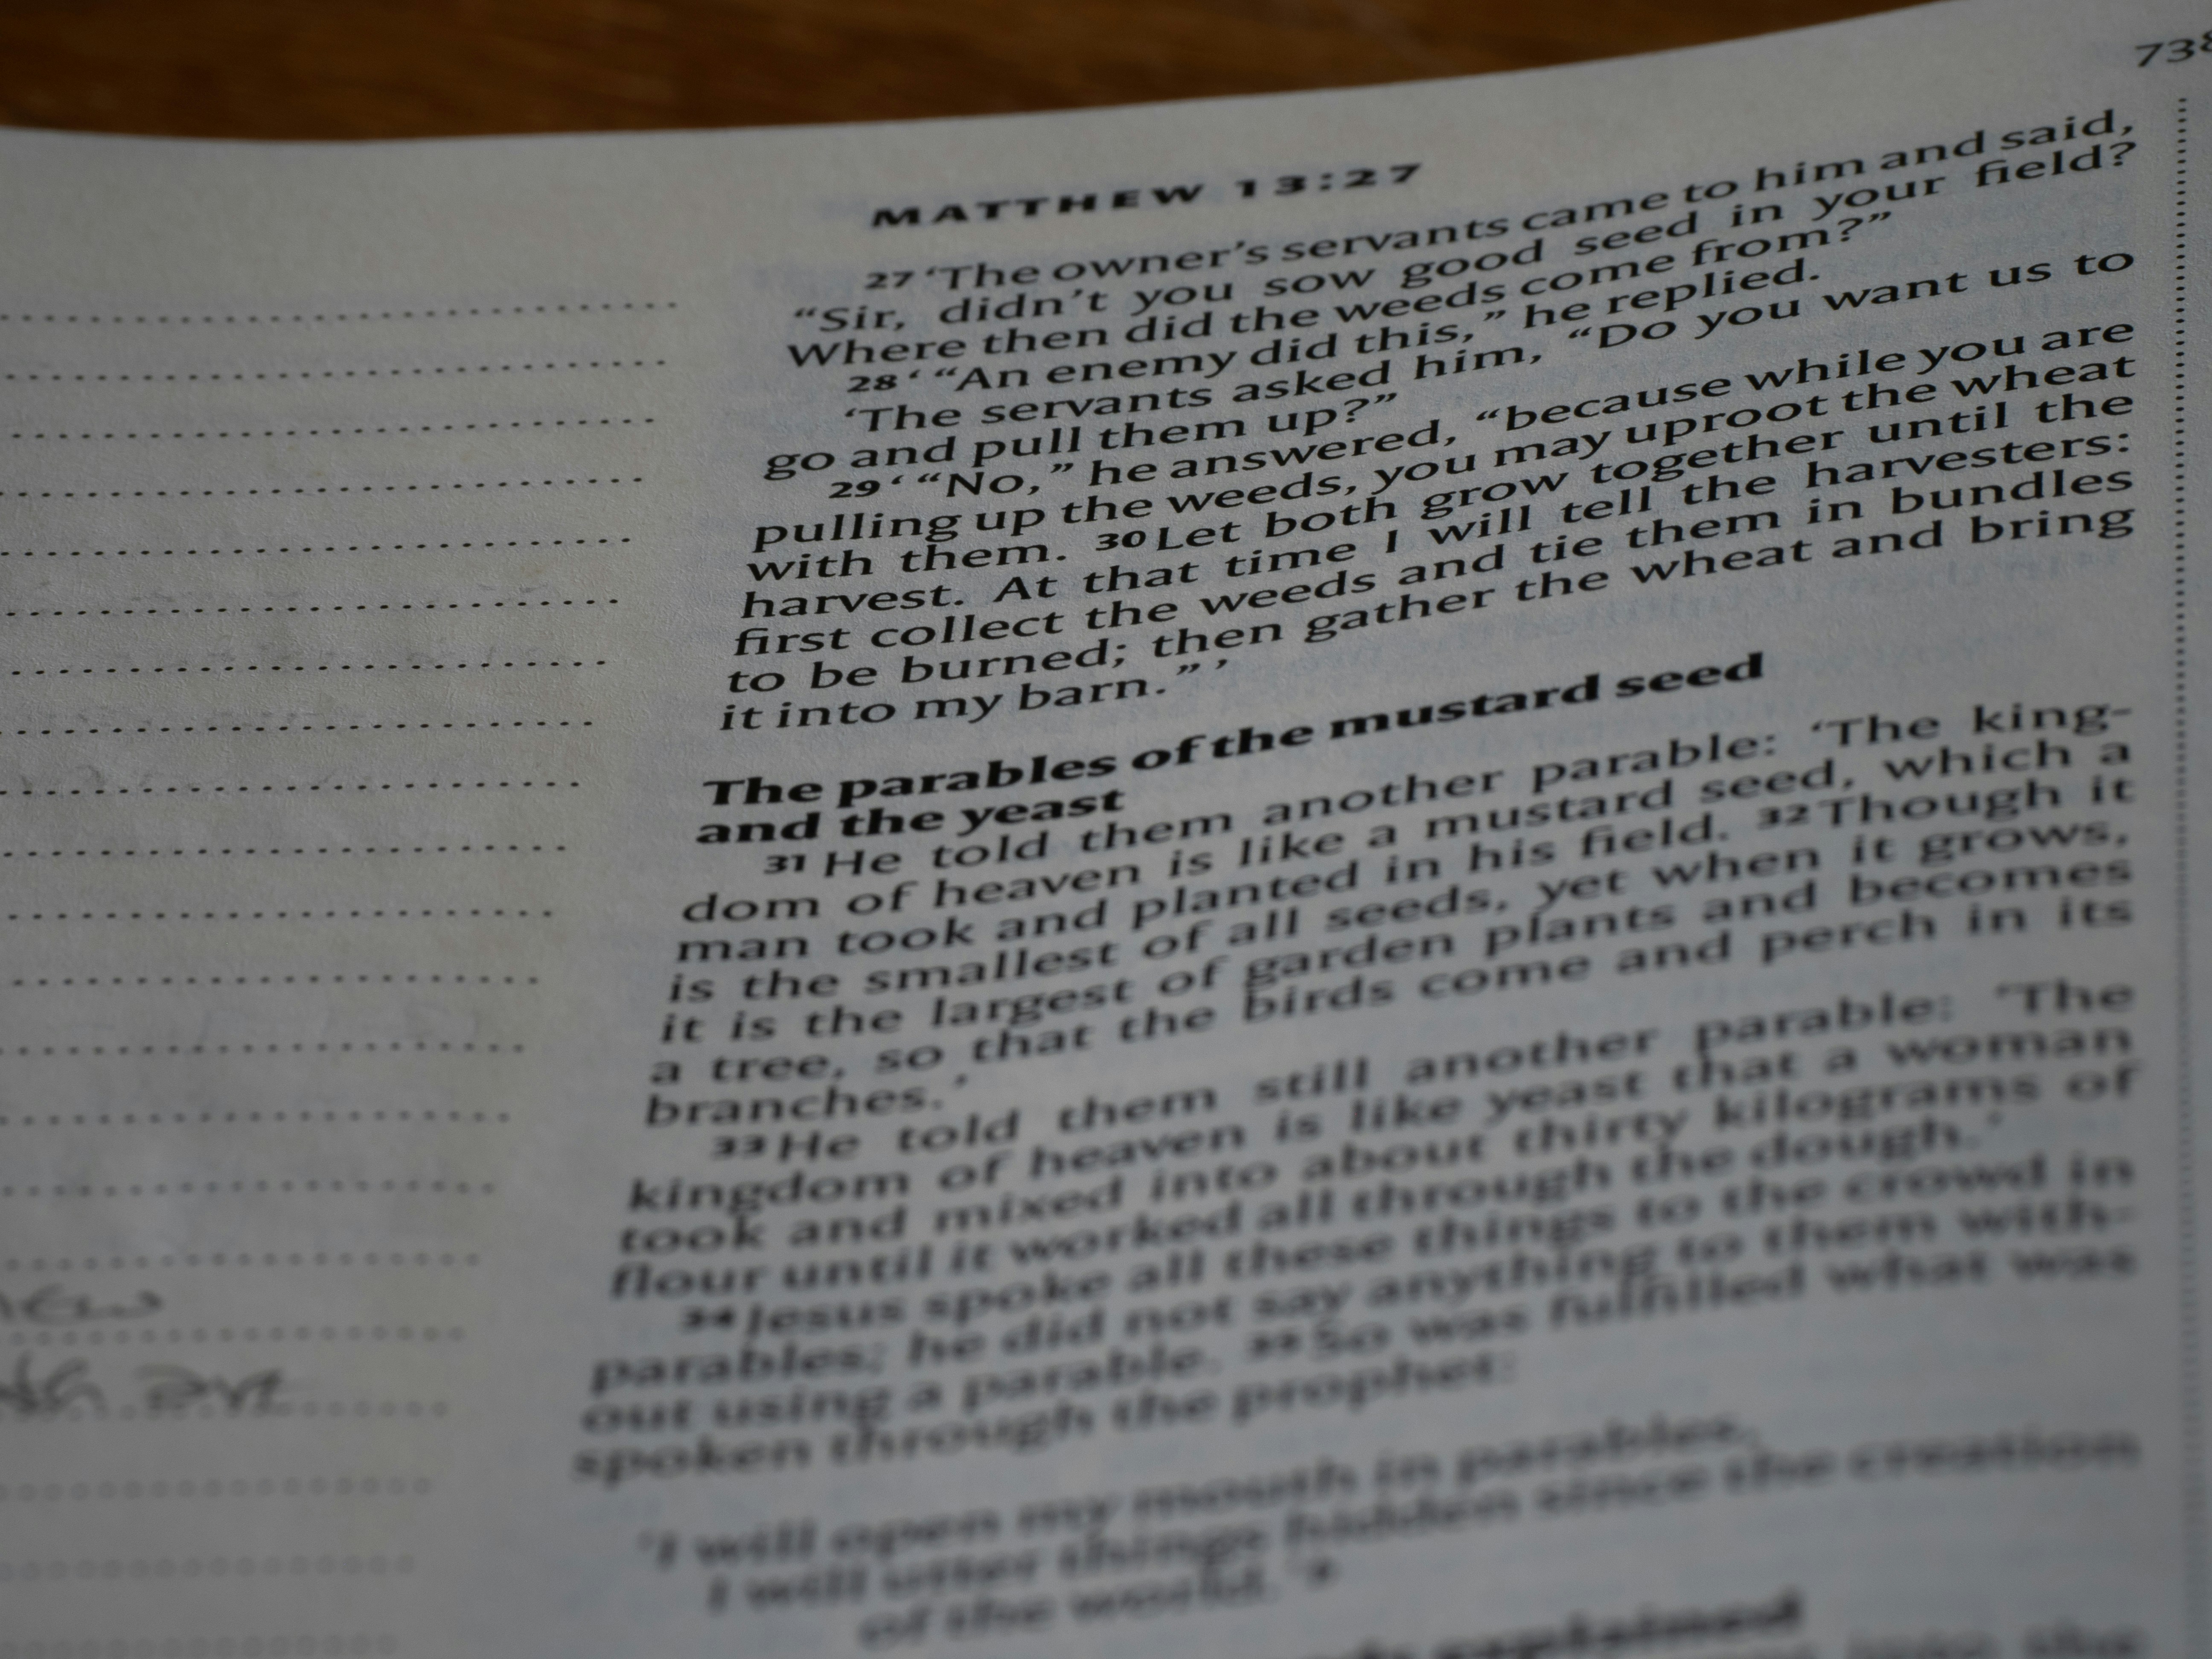 MATTHEW 13:27
27 ‘The owner’s servants came to him and said,
“Sir, didn’t you sow good seed in your field?
Where then did the weeds come from?”
28 ‘ “An enemy did this,” he replied.
‘The servants asked him, “Do you want us to
go and pull them up?”
29 ‘ “No,” he answered, “because while you are
pulling up the weeds, you may uproot the wheat
with them. 30 Let both grow together until the
harvest. At that time I will tell the harvesters:
first collect the weeds and tie them in bundles
to be burned; then gather the wheat and bring
it into my barn.” ’
The parables of the mustard seed
and the yeast
31 He told them another parable: ‘The king-
dom of heaven is like a mustard seed, which a
man took and planted in his field. 32 Though it
is the smallest of all seeds, yet when it grows,
it is the largest of garden plants and becomes
a tree, so that the birds come and perch in its
branches.’
33 He told them still another parable: ‘The
kingdom of heaven is like yeast that a woman
took and mixed into about thirty kilograms of
flour until it worked all through the dough.’
34 Jesus spoke all these things to the crowd in
parables; he did not say anything to them with-
out using a parable. 35 So was fulfilled what was
spoken through the prophet:
‘I will open my mouth in parables,
I will utter things hidden since the creation
of the world.’
explained